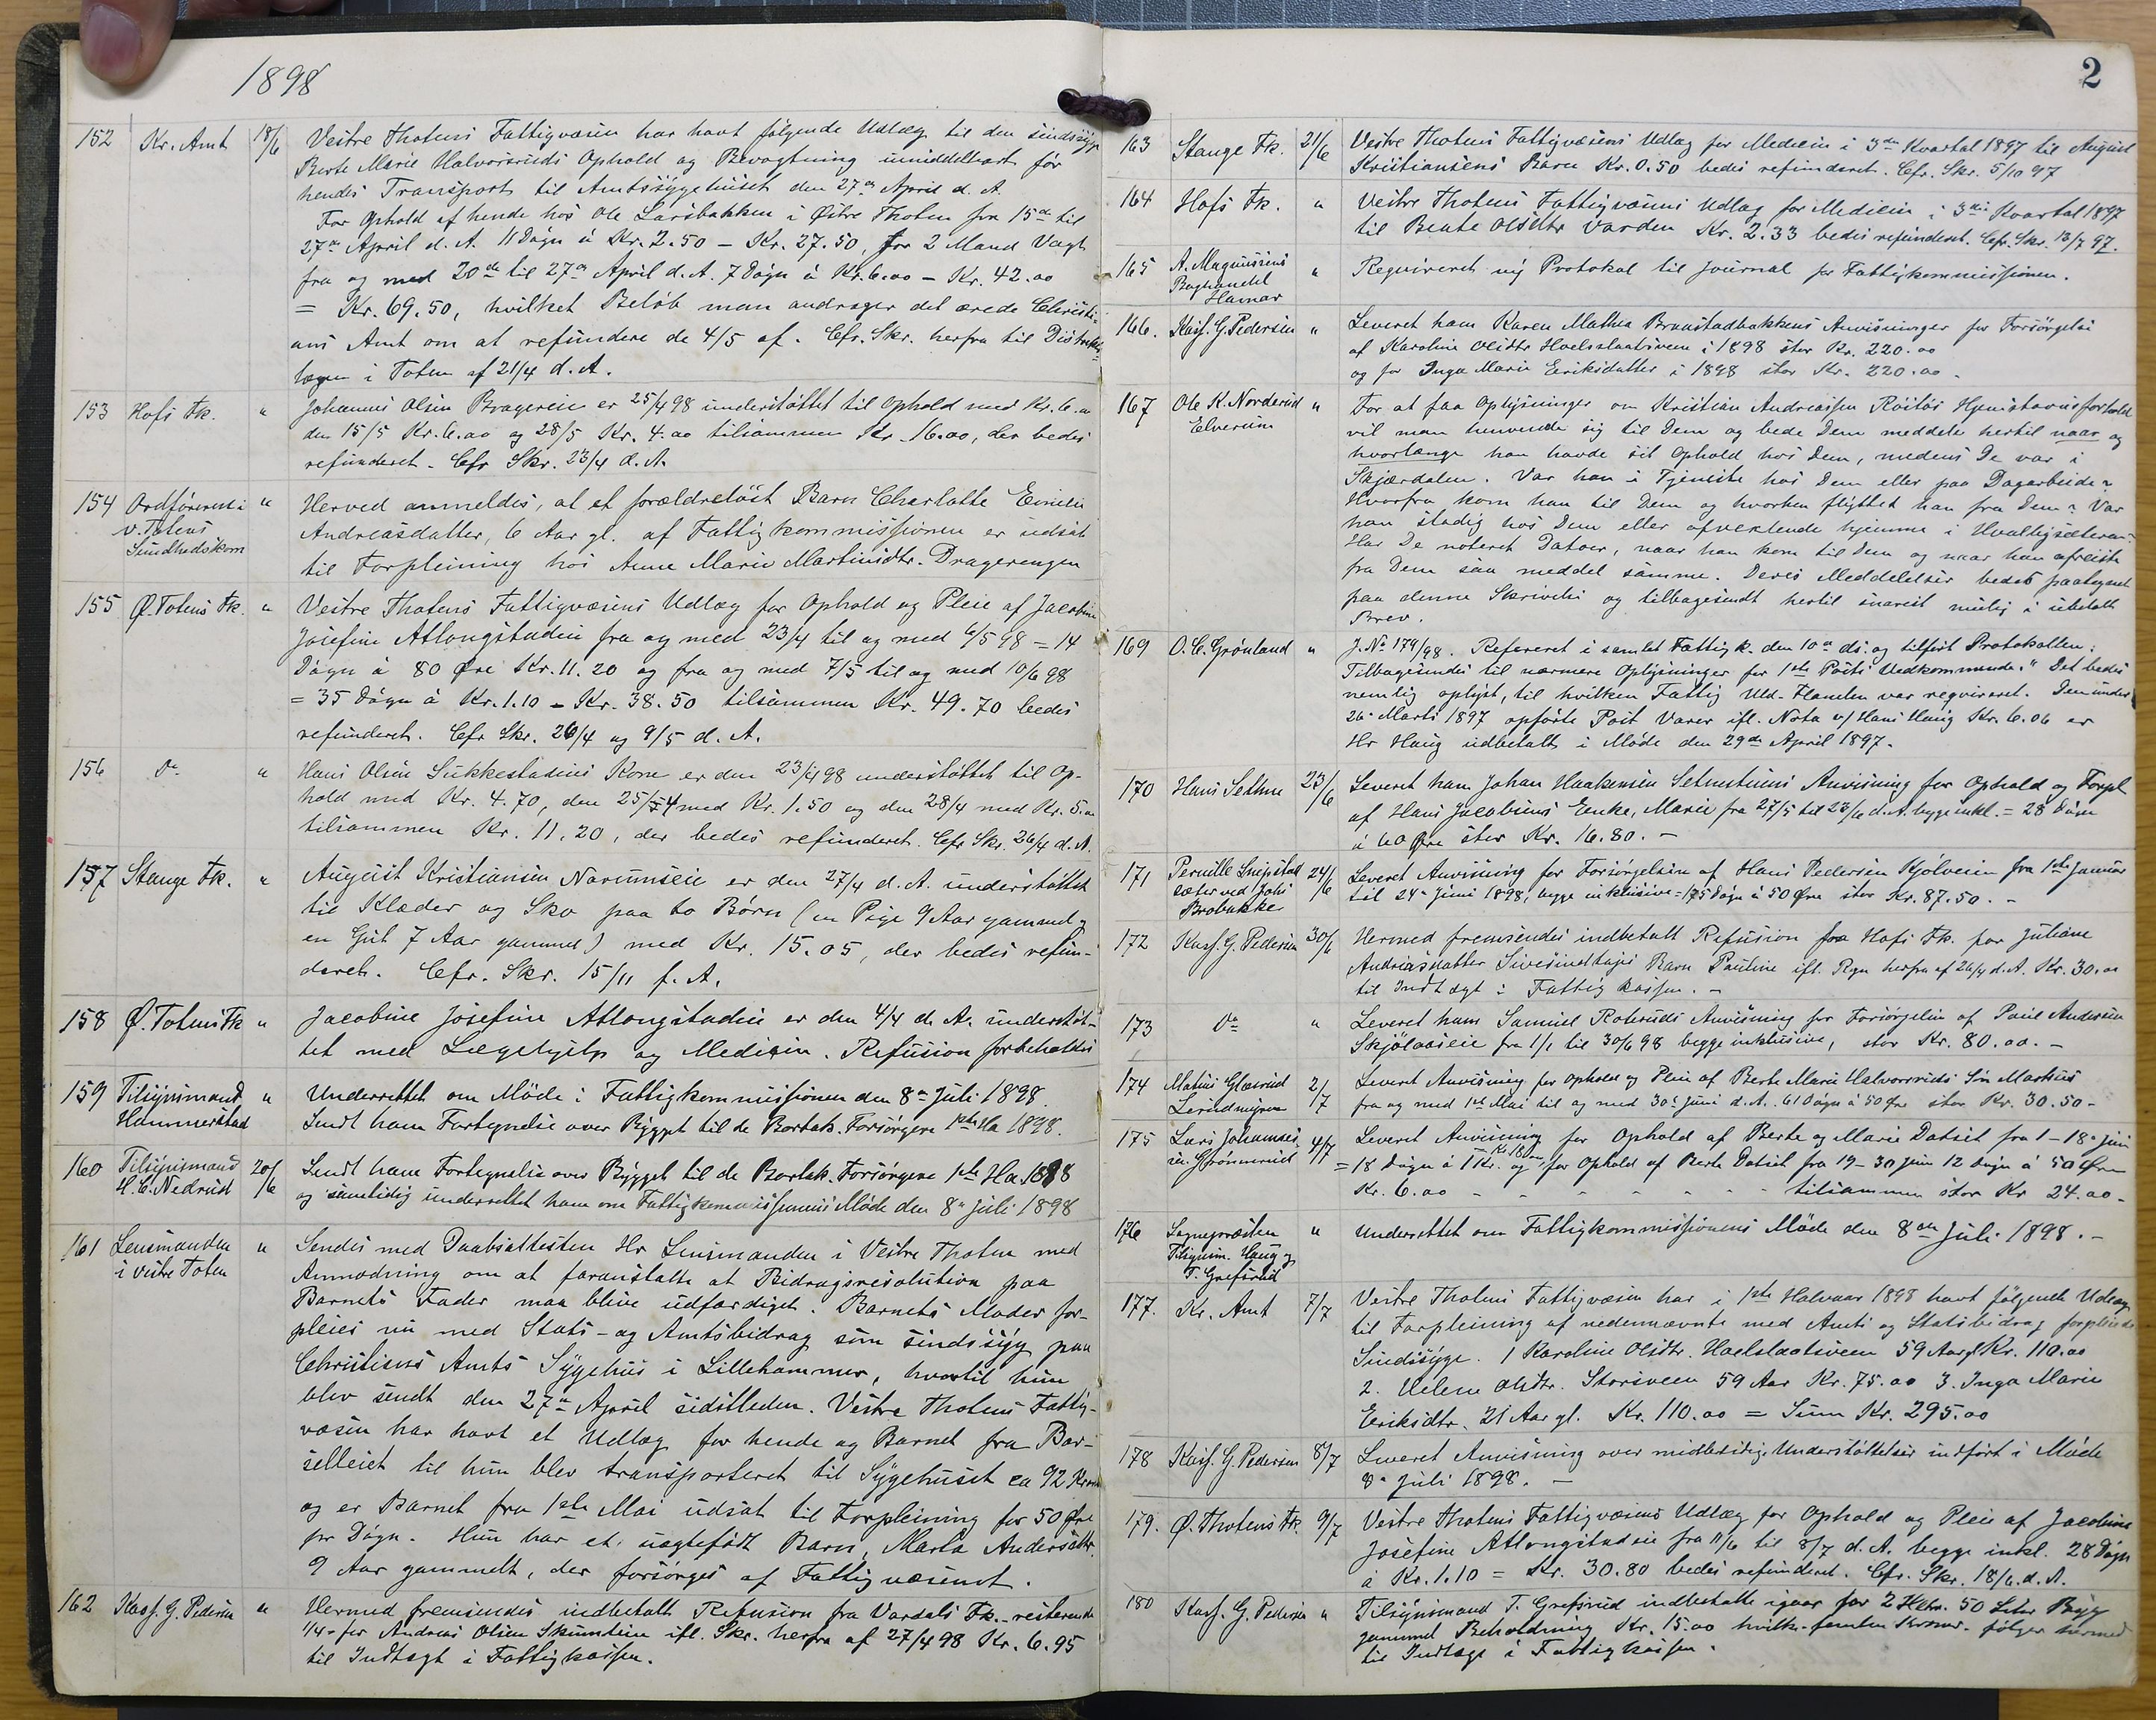 1898
152 Kr. Amt 18/6 Vestre Thotens Fattigvæsen har havt følgende Udlæg til den sindssyge
Berte Marie Halvorsruds Ophold og Bevogtning umiddelbart før
hendes Transport til Amtssygehuset den 27de April d. A.
For Ophold af hende hos Ole Larsbakken i Østre Thoten fra 15de til
27de April d. A. 11 Døgn á Kr. 2.50 – Kr. 27.50, for 2 Mand Vagt
fra og med 20de til 27de April d. A. 7 Døgn á Kr. 6.00 – Kr. 42.00
= Kr. 69.50, hvilket Beløb man andrager det ærede Christi-
ans Amt om at refundere de 4/5 af. Cfr. Skr. herfra til Distrikts-
lægen i Toten af 21/4 d. A.
153 Hofs Fk. " Johannes Olsen Bragereie er 25/4 98 understøttet til Ophold med Kr. 6.00
den 15/5 Kr. 6.00 og 28/5 Kr. 4.00 tilsammen Kr. 16.00, der bedes
refunderet. Cfr Skr. 23/4 d. A.
154 Ordføreren i " Herved anmeldes, at et forældreløst Barn Charlotte Emilie
V. Totens
Sundhedskom Andreasdatter, 6 Aar gl. af Fattigkommissionen er udsat
til Forpleining hos Anne Marie Martinsdtr. Dragerengen
155 Ø. Totens Fk. " Vestre Thotens Fattigvæsens Udlæg for Ophold og Pleie af Jacobine
Josefine Atlongstadeie fra og med 23/4 til og med 6/5 98 = 14
Døgn á 80 Øre Kr. 11.20 og fra og med 7/5 til og med 10/6 98
= 35 Døgn á Kr. 1.10 – Kr. 38.50 tilsammen Kr. 49.70 bedes
refunderet. Cfr Skr. 26/4 og 9/5 d. A.
156 Do " Hans Olsen Sukkestadeies Kone er den 23/4 98 understøttet til Op-
hold med Kr. 4.70, den 25/4 med Kr. 1.50 og den 28/4 med Kr. 5.00
tilsammen Kr. 11.20, der bedes refunderet. Cfr Skr. 26/4 d. A.
157 Stange Fk. " August Kristiansen Narumseie er den 27/4 d. A. understøttet
til Klæder og Sko paa to Børn (en Pige 9 Aar gammel og
en Gut 7 Aar gammel) med Kr. 15.05, der bedes refun-
deret. Cfr. Skr. 15/11 f. A.
158 Ø. Totens Fk " Jacobine Josefine Atlongstadeie er den 4/4 d. A. understøt-
tet med Lægehjelp og Medicin. Refusion forbeholdes
159 Tilsynsmand " Underrettet om Møde i Fattigkommissionen den 8de Juli 1898.
Hammerstad Sendt ham Fortegnelse over Bygget til de Bortsk. Forsørgere 1ste Ha 1898.
160 Tilsynsmand 20/6 Sendt ham Fortegnelse over Bygget til de Bortsk. Forsørgere 1ste Ha. 1898
H. C. Nedrud og samtidig underrettet ham om Fattigkommissionens Møde den 8de Juli 1898
161 Lensmanden " Sendes med Daabsattesten Hr Lensmanden i Vestre Thoten med
i Vestre Toten Anmodning om at foranstalte at Bidragsresolution paa
Barnets Fader maa blive udfærdiget. Barnets Moder for-
pleies nu med Stats- og Amtsbidrag som sindssyg paa
Christians Amts Sygehus i Lillehammer, hvortil hun
blev sendt den 27de April sidstleden. Vestre Thotens Fattig-
væsen har havt et Udlæg for hende og Barnet fra Bar-
selleiet til hun blev transporteret til Sygehuset ca 92 Kroner
og er Barnet fra 1ste Mai udsat til Forpleining for 50 Øre
pr Døgn. Hun har et uægtefødt Barn, Marta Andersdtr.
9 Aar gammelt, der forsørges af Fattigvæsenet.
162 Kass. G. Pedersen " Hermed fremsendes indbetalt Refusion fra Vardals Fk. resterende
1/4 for Andreas Olsen Skumlien ifl. Skr. herfra af 27/4 98 Kr. 6.95
til Indtægt i Fattigkassen.
2
163 Stange Fk. 21/6 Vestre Thotens Fattigvæsens Udlæg for Medicin i 3die Kvartal 1897 til August
Kristiansens Barn Kr. 0.50 bedes refunderet. Cfr. Skr. 5/10 97
164 Hofs Fk. " Vestre Thotens Fattigvæsens Udlæg for Medicin i 3die Kvartal 1897
til Beate Olsdtr Varden Kr. 2.33 bedes refunderet. Cfr. Skr. 13/7 97.
165 A. Magnussens " Requireret ny Protokol til Journal for Fattigkommissionen.
Boghandel
Hamar
166. Kass. G. Pedersen " Leveret ham Karen Mathea Braastadbakkens Anvisninger for Forsørgelse
af Karoline Olsdtr Hoelslaatsveen i 1898 stor Kr. 220.00
og for Inga Marie Eriksdatter i 1898 stor Kr. 220.00.
167 Ole K. Norderud " For at faa Oplysninger om Kristian Andreassen Røstøs Hjemstavnsforhold
Elverum vil man henvende sig til Dem og bede Dem meddele hertil naar og
hvorlænge han havde sit Ophold hos Dem, medens De var i
Skjærdalen. Var han i Tjeneste hos Dem eller paa Dagarbeide?
Hvorfra kom han til Dem og hvorhen flyttet han fra Dem? Var
han stadig hos Dem eller afvekslende hjemme i
Har De noteret Datoer, naar han kom til Dem og naar han afreiste
fra Dem saa meddel samme. Deres Meddelelser bedes paategnet
paa denne Skrivelse og tilbagesendt hertil snarest mulig i ubetalt
Brev.
169 O. C. Grønland " J. No 179/98. Refereret i samlet Fattigk. den 10de ds. og tilført Protokollen:
Tilbagesendes til nærmere Oplysninger for 1ste Posts Vedkommende." Det bedes
nemlig oplyst, til hvilken Fattig Uld-Flanelen var requireret. Den under
26de Marts 1897 opførte Post Varer ifl. Nota v/ Hans Haug Kr. 6.06 er
Hr Haug udbetalt i Møde den 29de April 1897.
170 Hans Sethne 23/6 Leveret ham Johan Haakensen Anvisning for Ophold og Forpl
af Hans Jacobsens Enke, Marie fra 27/5 til 23/6 d. A. begge inkl. = 28 Døgn
á 60 Øre stor Kr. 16.80. –
171 Pernille Snipstad- 24/6 Leveret Anvisning for Forsørgelsen af Hans Pedersen fra 1ste Januar
sæter ved Johs
Brobakke til 24de Juni 1898, begge inklusive = 175 Døgn á 50 Øre stor Kr. 87.50. –
172 Kass. G. Pedersen 30/6 Hermed fremsendes indbetalt Refusion fra Hofs Fk. for Juliane
Andreasdatter Barn Pauline ifl. Regn herfra af 26/4 d. A. Kr. 30.00
til Indtægt i Fattigkassen. –
173 Do " Leveret ham Samuel Roteruds Anvisning for Forsørgelse af Paul Andersen
Skjølaaseie fra 1/1 til 30/6 98 begge inklusive, stor Kr. 80.00. –
174 Matius Glæserud 2/7 Leveret Anvisning for Ophold og Pleie af Berte Marie Halvorsruds Søn Markus
fra og med 1ste Mai til og med 30te Juni d. A. 61 Døgn á 50 Øre stor Kr. 30.50 –
175 Lars Johannes- 4/7 Leveret Anvisning for Ophold af Berte og Marie Datset fra 1 – 18de Juni
sen Grønnerud = 18 Døgn á 1 Kr. = Kr 18.00 og for Ophold af Berte Datset fra 19 – 30 Juni 12 Døgn á 50 Øre
Kr. 6.00 - - - - - - - tilsammen stor Kr 24.00 –
176 Sognepræsten " Underrettet om Fattigkommissionens Møde den 8de Juli 1898. –
Tilsynsm. Haug og
T. Grefsrud
177. Kr. Amt 7/7 Vestre Thotens Fattigvæsen har i 1ste Halvaar 1898 havt følgende Udlæg
til Forpleining af nedennævnte med Amts og Statsbidrag forpleiede
Sindssyge. 1 Karoline Olsdtr. Hoelslaatsveen 59 Aar gl Kr. 110.00
2. Helene Olsdtr. Storsveen 59 Aar Kr. 75.00 3. Inga Marie
Eriksdtr. 21 Aar gl. Kr. 110.00 = Sum Kr. 295.00
178 Kass. G. Pedersen 8/7 Leveret Anvisning over midlertidig Understøttelser indført i Møde
8de Juli 1898. –
179. Ø. Thotens Fk. 9/7 Vestre Thotens Fattigvæsens Udlæg for Ophold og Pleie af Jacobine
Josefine Atlongstadeie fra 11/6 til 8/7 d. A. begge inkl. 28 Døgn
á Kr. 1.10 = Kr. 30.80 bedes refunderet. Cfr. Skr. 18/6. d. A.
180 Kass. G. Pedersen " Tilsynsmand T. Grefsrud indbetalte igaar for 2 Hktr. 50 Liter Byg
gammel Beholdning Kr. 15.00 hvilke femten Kroner følger hermed
til Indtægt i Fattigkassen.